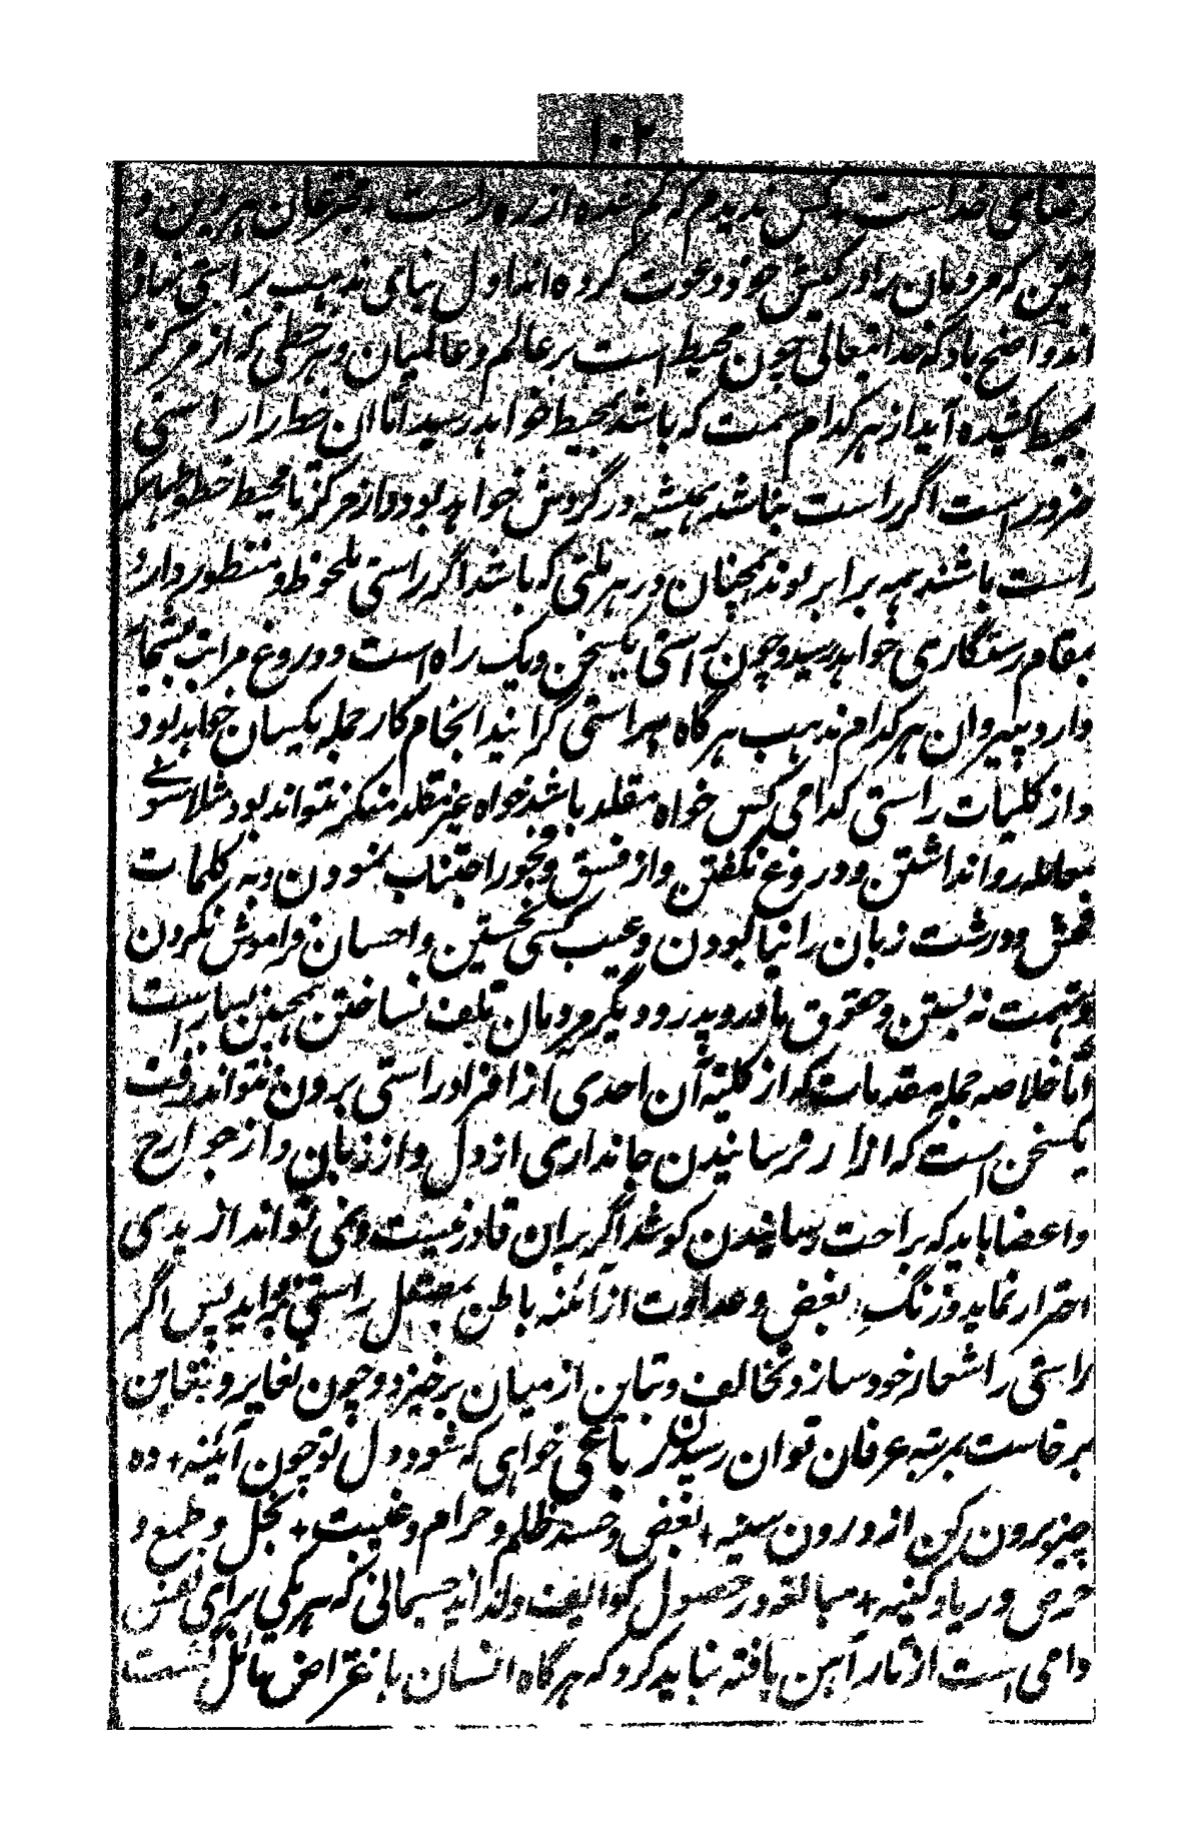 ۱۰۲
رضای خداست + کس ندیدم که گم شده از ره راست + مخترعان هر دین و
آئین که مردمان را در کیش خود دعوت کرده اند اول بنای مذهب براستی نهاده
اند واضح باد که خدایتعالی چون محیط است بر عالم و عالمیان و هر خطی که از مرکز
بمحیط کشیده آید از هر کدام سمت که باشد بمحیط خواهد رسید اما آن خط را راستی
ضرور است اگر راست نباشد همیشه در گردش خواهد بود و از مرکز تا محیط خطوطیکه
راست باشند همه برابر بوند همچنان در هر ملتی که باشد اگر راستی ملحوظ و منظور دارد
بمقام رستگاری خواهد رسید و چون راستی یکسخن و یک راه است و دروغ مراتب بیشمار
دارد پیروان هر کدام مذهب هر گاه براستی گرایند انجام کار جمله یکسان خواهد بود
و از کلیات راستی کدامی کس خواه مقلد باشد خواه غیر مقلد منکر نتواند بود مثلا سوئے
معامله روا نداشتن و دروغ نگفتن و از فسق و فجور اجتناب نمودن و به کلمات
فحش و درشت زبان را نیالودن و عیب کسی نجستن و احسان فراموش نکردن
و تهمت نه بستن و حقوق مادر و پدر و دیگر مردمان تلف نساختن همچنین بسیار است
اما خلاصه جمله مقدمات که از کلیه آن احدی از افراد راستی برون نتواند رفت
یکسخن است که آزار نرسانیدن جانداری از دل و از زبان و از جوارح
و اعضا باید که براحت رسانیدن کوشد اگر بر آن قادر نیست و نمی تواند از بدی
احتراز نماید و زنگ بغض و عداوت از آئنه باطن بمصقل راستی بزداید پس اگر
راستی را شعار خود سازد و تخالف و تباین از میان برخیزد و چون تغایر و تغابن
برخاست بمرتبه عرفان توان رسیدن رباعی خواهی که شود دل تو چون آئینه + ده
چیز برون کن از درون سینه + بغض و حسد و ظلم و حرام و غیبت + بخل و طمع و
حرص و ریا و کینه + مبالغه در حصول کوایف و لذاید جسمانی که هر یکی برای نفس
دامی است از تار آهن بافته نباید کرد که هر گاه انسان باغراض مائل گشت